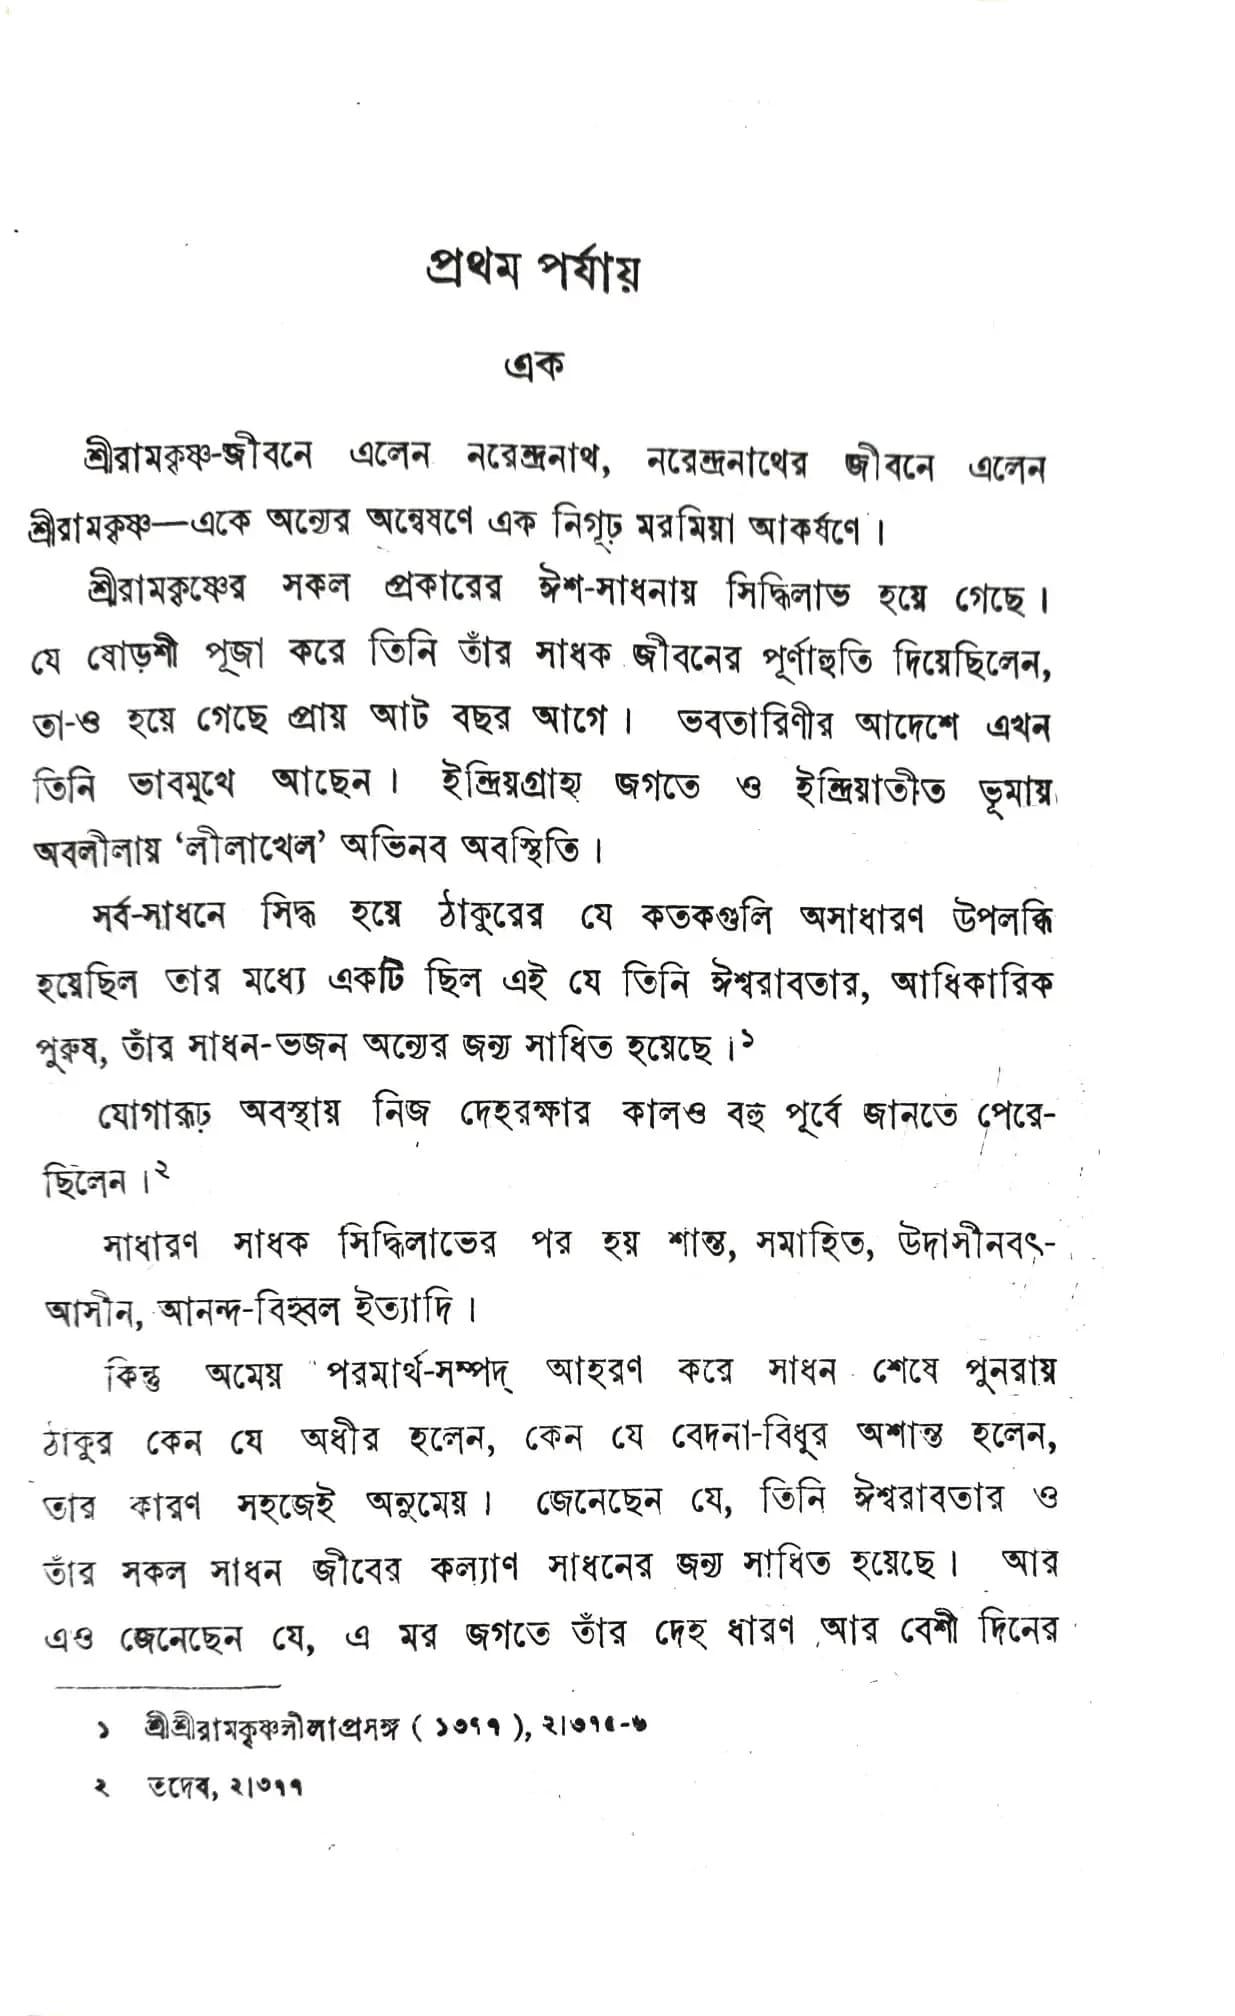 প্রথম পর্যায়
এক
শ্রীরামকৃষ্ণ-জীবনে এলেন নরেন্দ্রনাথ, নরেন্দ্রনাথের জীবনে এলেন
শ্রীরামকৃষ্ণ—একে অন্যের অন্বেষণে এক নিগূঢ় মরমিয়া আকর্ষণে।
শ্রীরামকৃষ্ণের সকল প্রকারের ঈশ-সাধনায় সিদ্ধিলাভ হয়ে গেছে।
যে ষোড়শী পূজা করে তিনি তাঁর সাধক জীবনের পূর্ণাহুতি দিয়েছিলেন,
তা-ও হয়ে গেছে প্রায় আট বছর আগে। ভবতারিণীর আদেশে এখন
তিনি ভাবমুখে আছেন। ইন্দ্রিয়গ্রাহ্য জগতে ও ইন্দ্রিয়াতীত ভূমায়
অবলীলায় ‘লীলাখেল’ অভিনব অবস্থিতি।
সর্ব-সাধনে সিদ্ধ হয়ে ঠাকুরের যে কতকগুলি অসাধারণ উপলব্ধি
হয়েছিল তার মধ্যে একটি ছিল এই যে তিনি ঈশ্বরাবতার, আধিকারিক
পুরুষ, তাঁর সাধন-ভজন অন্যের জন্য সাধিত হয়েছে।১
যোগারূঢ় অবস্থায় নিজ দেহরক্ষার কালও বহু পূর্বে জানতে পেরে-
ছিলেন।২
সাধারণ সাধক সিদ্ধিলাভের পর হয় শান্ত, সমাহিত, উদাসীনবৎ-
আসীন, আনন্দ-বিহ্বল ইত্যাদি।
কিন্তু অমেয় পরমার্থ-সম্পদ্ আহরণ করে সাধন শেষে পুনরায়
ঠাকুর কেন যে অধীর হলেন, কেন যে বেদনা-বিধুর অশান্ত হলেন,
তার কারণ সহজেই অনুমেয়। জেনেছেন যে, তিনি ঈশ্বরাবতার ও
তাঁর সকল সাধন জীবের কল্যাণ সাধনের জন্য সাধিত হয়েছে। আর
এও জেনেছেন যে, এ মর জগতে তাঁর দেহ ধারণ আর বেশী দিনের
১ শ্রীশ্রীরামকৃষ্ণলীলাপ্রসঙ্গ ( ১৩৭৭ ), ২।৩৭৫-৬
২ তদেব, ২।৩৭৭